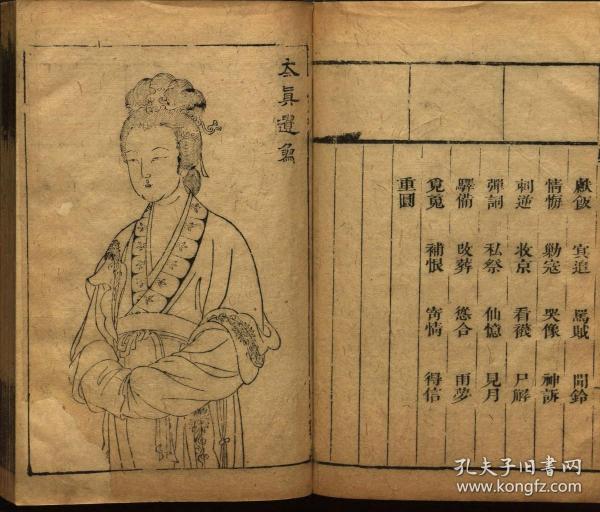 獻飯 冥追 罵賊 聞鈴
情悔 勦寇 哭像 神訴
刺逆 收京 看襪 尸解
彈詞 私祭 仙憶 見月
驛備 改葬 慫合 雨夢
覓魂 補恨 寄情 得信
重圓
太真遺像
孔夫子旧書网
www.kongfz.com